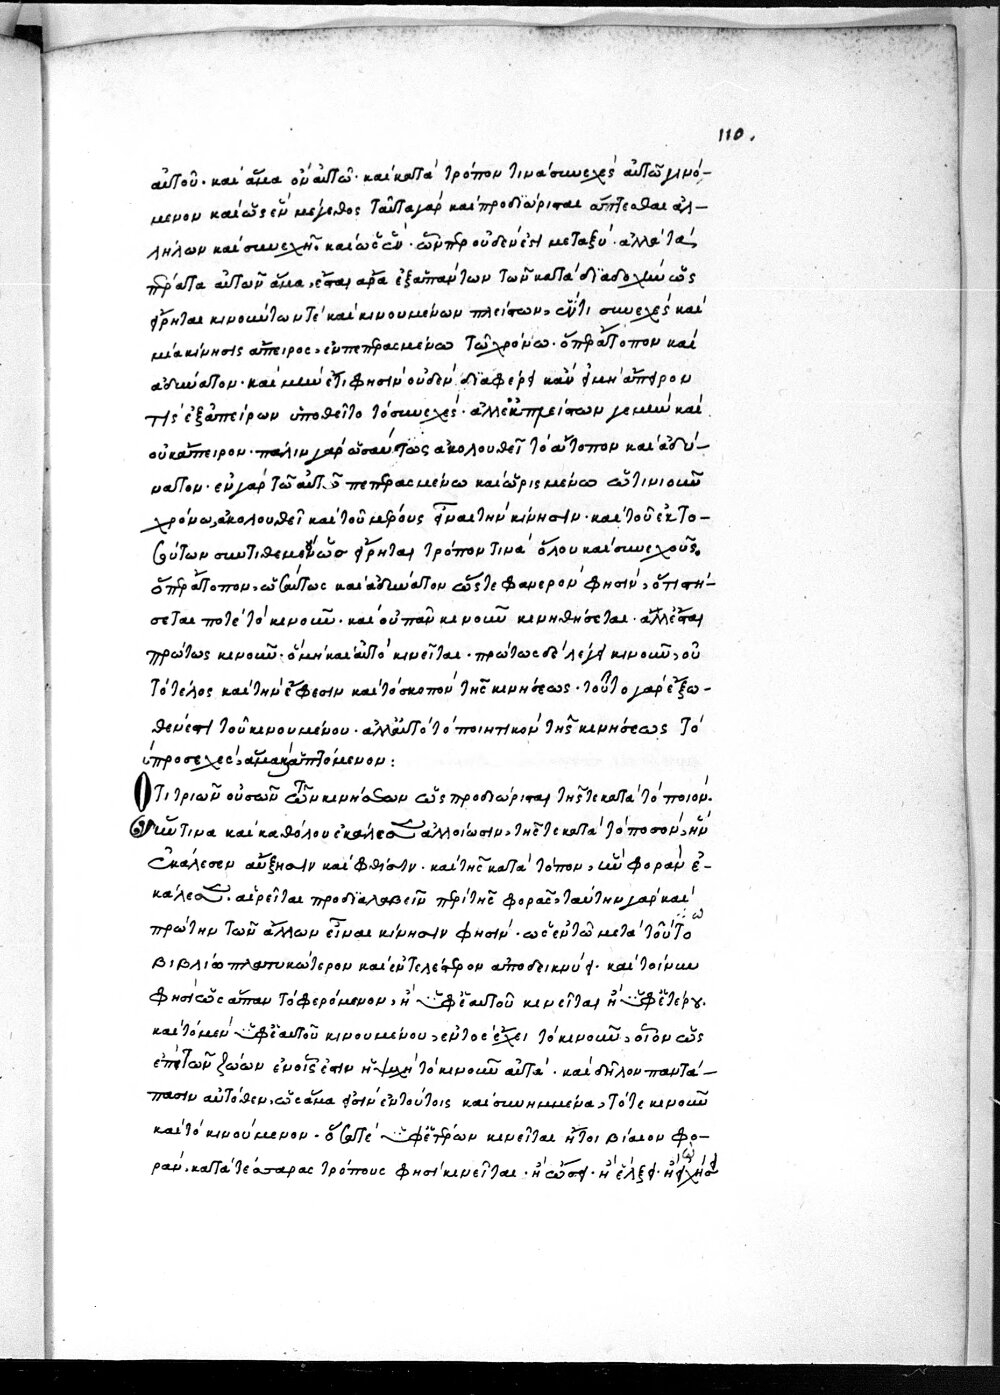 110.
αὐτοῦ· καὶ ἅμα ὂν αὐτῶ· καὶ κατὰ τρόπον τινὰ συνεχὲς αὐτῶ γινό-
μενον καὶ ὡς ἓν μέγεθος ταῦτα γὰρ καὶ προδιώρισται ἅπτεσθαι ἀλ-
λήλων καὶ συνεχῆ καὶ ὡς ἓν· ὧνπερ οὐδέν ἐστι μεταξὺ· ἀλλὰ τὰ
πέρατα αὐτῶν ἅμα, ἔσται ἄρα ἐξ ἁπάντων τῶν κατὰ διαδοχὴν ὡς
εἴρηται κινούντων τὲ καὶ κινουμένων πλείστων, ἕν τι συνεχὲς καὶ
μία κίνησις ἄπειρος, ἐν πεπερασμένω τῶ χρόνω· ὅπερ ἄτοπον καὶ
ἀδύνατον· καὶ μὴν ἔτι φησὶν οὐδὲν διαφέρει κἂν εἰ μὴ ἄπειρον
τις ἐξ ἀπείρων ὑποθεῖτο τὸ συνεχὲς· ἀλλ' ἐκ πλείστων γε μὴν καὶ
οὐκ ἄπειρον· πάλιν γὰρ ὡσαύτως ἀκολουθεῖ τὸ ἄτοπον καὶ ἀδύ-
νατον· ἐν γὰρ τῶ αὐτῶ πεπερασμένω καὶ ὡρισμένω ὡτινιοῦν
χρόνω, ἀκολουθεῖ καὶ τοῦ μέρους εἶναι τὴν κίνησιν· καὶ τοῦ ἐκ το-
σούτων συντιθεμένου ὡς εἴρηται τρόπον τινὰ ὅλου καὶ συνεχοῦς.
ὅπερ ἄτοπον, ὡσαύτως καὶ ἀδύνατον ὥστε φανερὸν φησὶν, ὅτι στή-
σεται ποτὲ τὸ κινοῦν· καὶ οὐ πᾶν κινοῦν κινηθήσεται· ἀλλ' ἔσται
πρώτως κινοῦν· ὃ μὴ καὶ αὐτὸ κινεῖται· πρώτως δὲ λέγει κινοῦν, οὐ
τὸ τέλος καὶ τὴν ἔφεσιν καὶ τὸ σκοπὸν τῆς κινήσεως· τοῦτο γὰρ ἔξω-
θέν ἐστι τοῦ κινουμένου· ἀλλ' αὐτὸ τὸ ποιητικὸν τῆς κινήσεως τὸ
προσεχὲς, ἅμα καὶ ἁπτόμενον:
Ὅτι τριῶν οὐσῶν τῶν κινήσεων ὡς προδιώρισται τῆς τε κατὰ τὸ ποιὸν.
ἥντινα καὶ καθόλου ἐκάλεσεν ἀλλοίωσιν, τῆς τε κατὰ τὸ ποσὸν, ἣν
ἐκάλεσεν αὔξησιν καὶ φθίσιν· καὶ τῆς κατὰ τόπον, ἣν φορὰν ἐ-
κάλεσεν· αἱρεῖται προδιαλαβεῖν περὶ τῆς φορᾶς, ταύτην γὰρ καὶ
πρώτην τῶν ἄλλων εἶναι κίνησιν φησίν· ὡς ἐν τῶ μετὰ τοῦτο
βιβλίω πλατυκώτερον καὶ ἐντελέστερον ἀποδεικνύει· καὶ τοίνυν
φησὶ ὡς ἅπαν τὸ φερόμενον, ἢ ὑφ' ἑαυτοῦ κινεῖται ἢ ὑφ' ἑτέρου.
καὶ τὸ μὲν ὑφ' ἑαυτοῦ κινουμένου, ἐντὸς ἔχει τὸ κινοῦν, οἷον ὡς
ἐπὶ τῶν ζώων ἐν οἷς ἐστιν ἡ ψυχὴ τὸ κινοῦν αὐτὰ· καὶ δῆλον παντά-
πασιν αὐτόθεν, ὡς ἅμα εἰσὶν ἐν τούτοις καὶ συνημμένα, τό τε κινοῦν
καὶ τὸ κινούμενον· ὅσα τε ὑφ' ἑτέρων κινεῖται ἤτοι βίαιον φο-
ρὰν, κατὰ τέσσαρας τρόπους φησὶ κινεῖται· ἢ ὤσει· ἢ ἕλξει· ἢ ὀχήσει